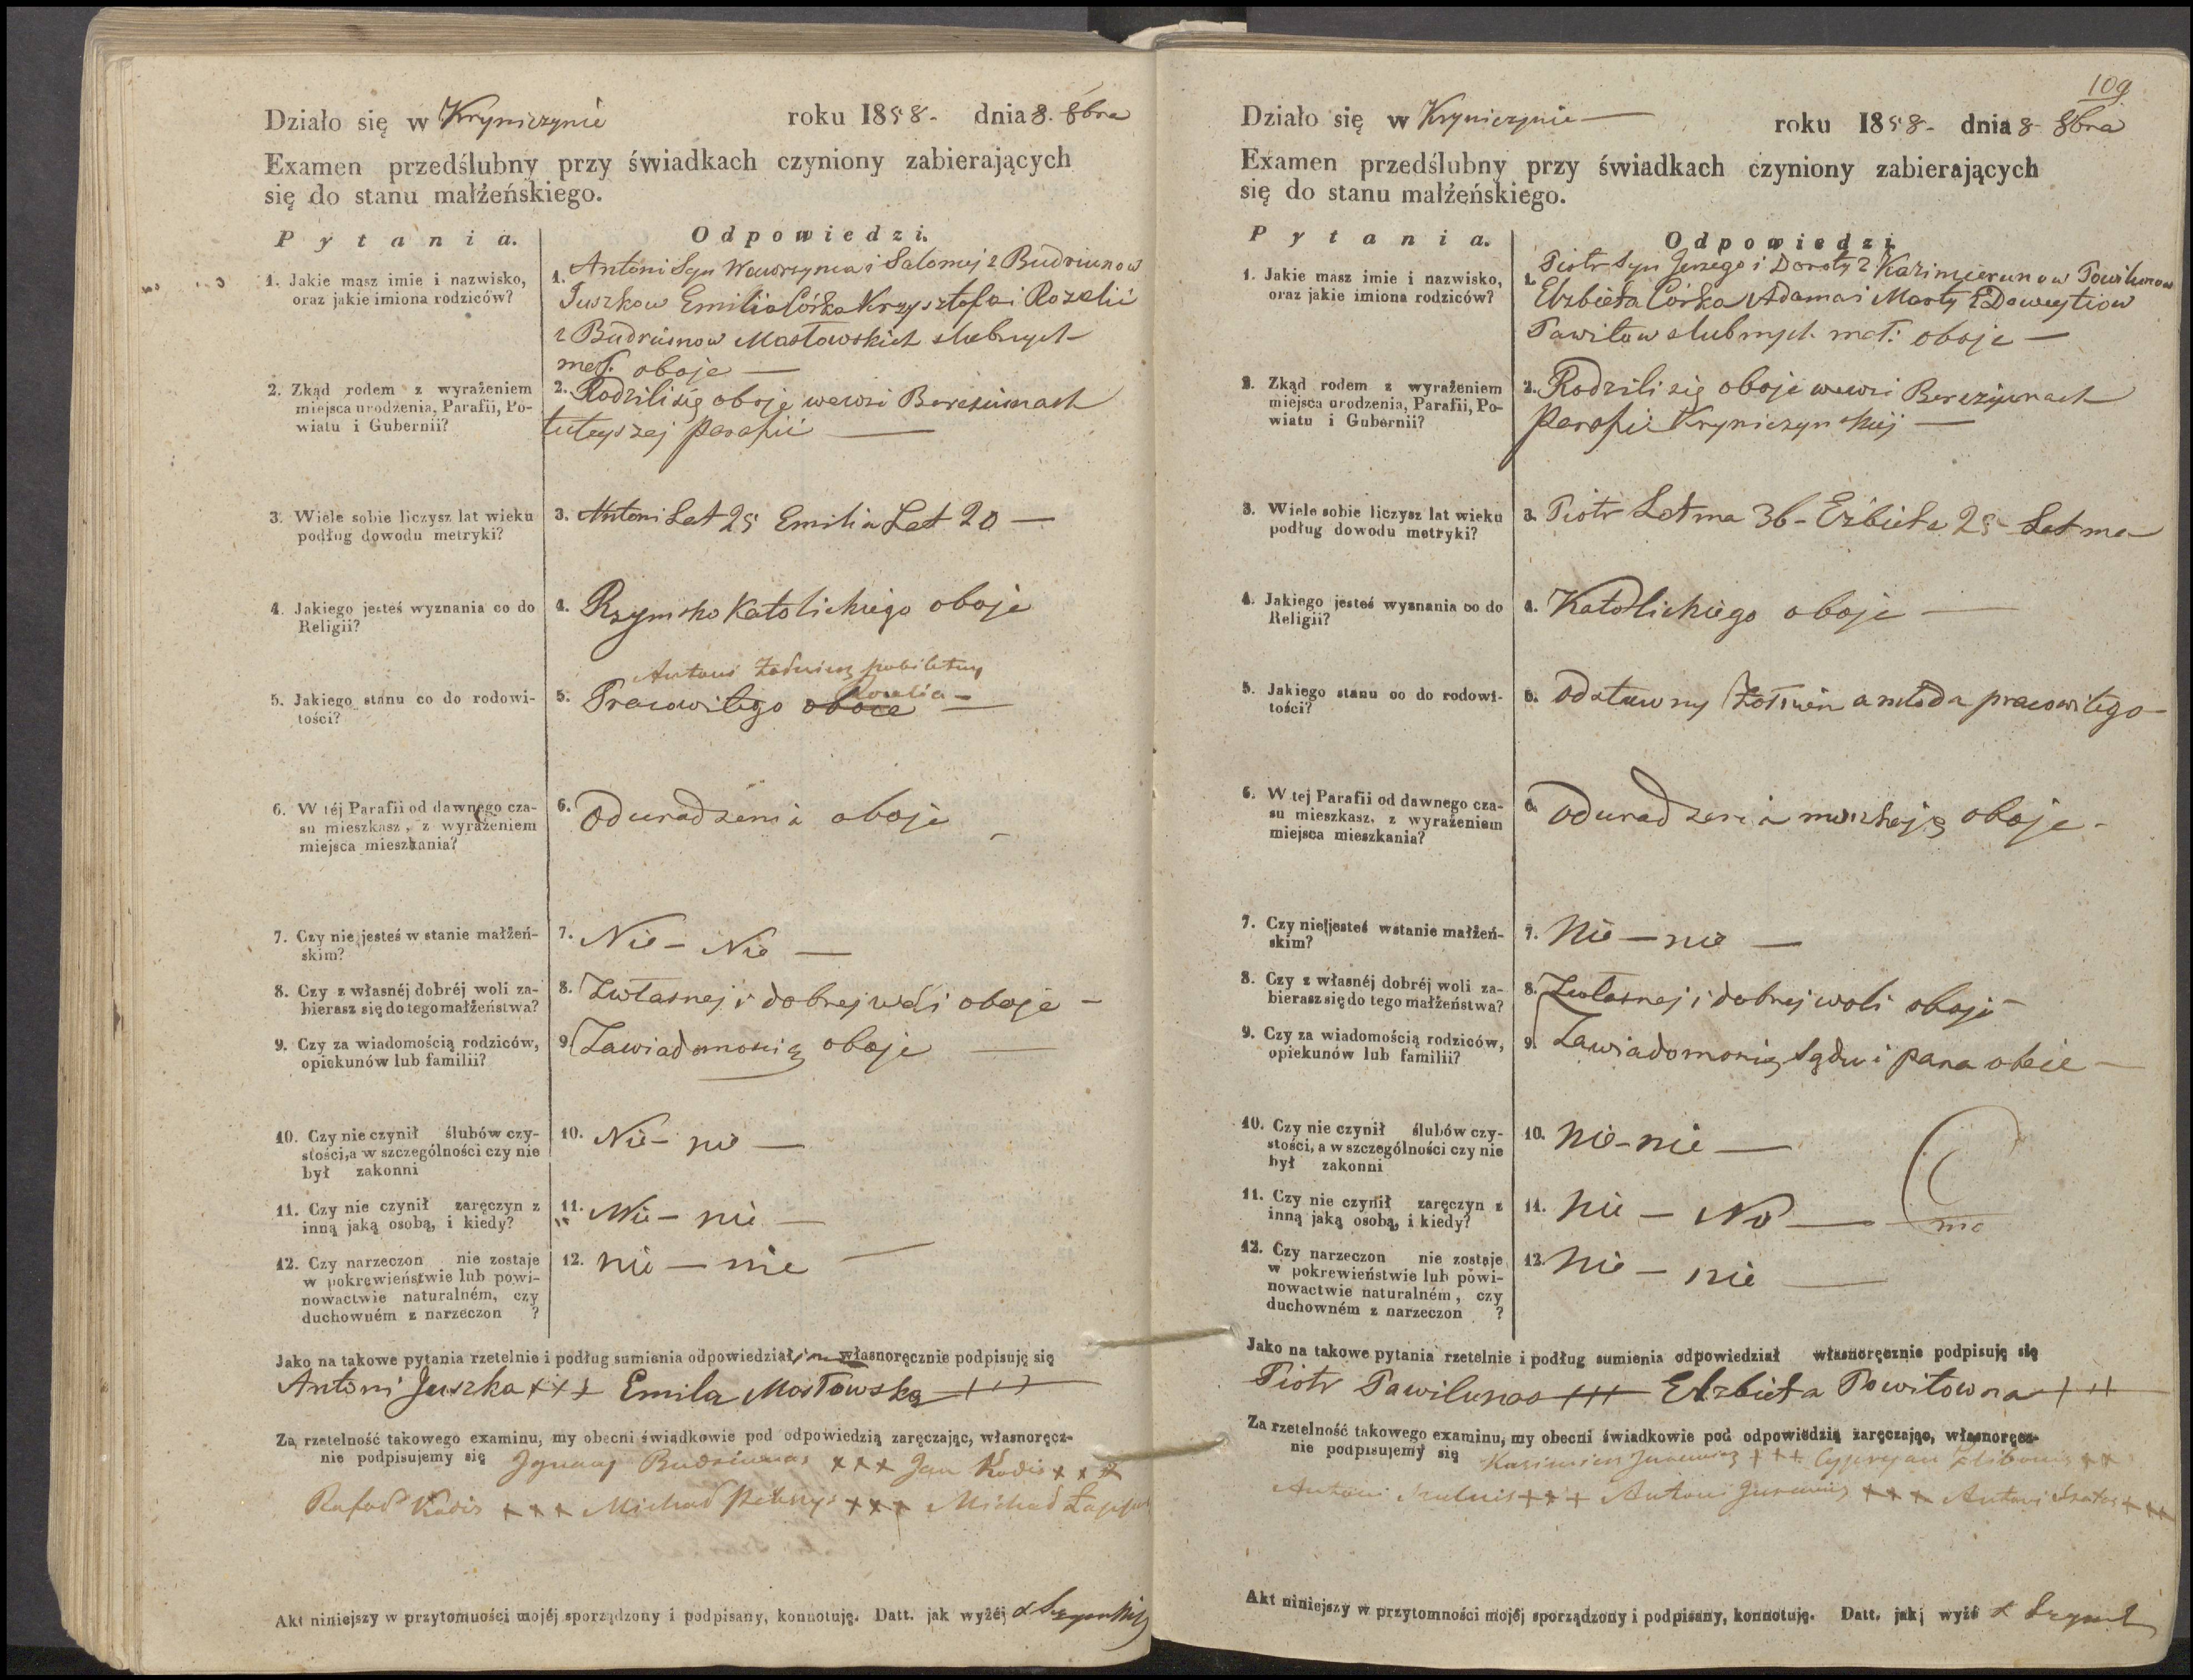 Działo się w Kryniczynie roku 1858. dnia 8. 8bra
Examen przedślubny przy świadkach czyniony zabierających
się do stanu małżeńskiego.
Pytania. Odpowiedzi.
1. Jakie masz imie i nazwisko,
oraz jakie imiona rodziców?
1. Antoni Syn Wawrzynca i Salomej z Budriunow
Juszkow Emilia Córka Krzysztofa i Rozalii
z Budriunow Masłowskich slubnych
mał. oboje —
2. Zkąd rodem z wyrażeniem
miejsca urodzenia, Parafii, Po-
wiatu i Gubernii?
2. Rodzili się oboje wewsi
tuteyszej parafii —
3. Wiele sobie liczysz lat wieku
podług dowodu metryki?
3. Antoni Lat 25 Emilia Lat 20 —
4. Jakiego jesteś wyznania co do
Religii?
4. Rzymsko Katolickiego oboje
5. Jakiego stanu co do rodowi-
tości?
Antoni
5. Pracowitego oboje Rozalia —
6. W téj Parafii od dawnego cza-
su mieszkasz, z wyrażeniem
miejsca mieszkania?
6. Od uradzenia oboje —
7. Czy nie jesteś w stanie małżeń-
skim?
7. Nie — Nie —
8. Czy z własnéj dobréj woli za-
bierasz się do tego małżeństwa?
8. Zwłasnej i dobrej woli oboje —
9. Czy za wiadomością rodziców,
opiekunów lub familii?
9. Zawiadomoscią oboje —
10. Czy nie czynił ślubów czy-
stości, a w szczególności czy nie
był zakonni
10. Nie — nie —
11. Czy nie czynił zaręczyn z
inną jaką osobą, i kiedy?
11. Nie — nie —
12. Czy narzeczon nie zostaje
w pokrewieństwie lub powi-
nowactwie naturalném, czy
duchowném z narzeczon ?
12. nie — nie —
Jako na takowe pytania rzetelnie i podług sumienia odpowiedział własnoręcznie podpisuję się
Antoni Juszka +++ Emila Mosłowska +++
Za rzetelność takowego examinu, my obecni świadkowie pod odpowiedzią zaręczając, własnoręcz-
nie podpisujemy się Ignacy Budriunas +++ Jan Kodis +++
Rafał Kodis +++ Michał +++ Michał
Akt niniejszy w przytomności mojéj sporządzony i podpisany, konnotuję. Datt. jak wyżéj
109
Działo się w Kryniczynie — roku 1858. dnia 8 8bra
Examen przedślubny przy świadkach czyniony zabierających
się do stanu małżeńskiego.
Pytania. Odpowiedzi.
1. Jakie masz imie i nazwisko,
oraz jakie imiona rodziców?
1. Piotr Syn Jerzego i Doroty z Kazimierunow Powilunow
Elzbieta Córka Adama i Marty z
Pawiłow slubnych mał: oboje —
2. Zkąd rodem z wyrażeniem
miejsca urodzenia, Parafii, Po-
wiatu i Gubernii?
2. Rodzili się oboje wewsi Berezynach
parafii Kryniczynskiej —
3. Wiele sobie liczysz lat wieku
podług dowodu metryki?
3. Piotr Lat ma 36 — Elzbieta 25 — Lat ma
4. Jakiego jesteś wyznania co do
Religii?
4. Katolickiego oboje —
5. Jakiego stanu co do rodowi-
tości?
5. Odstawny a młoda pracowitego —
6. W tej Parafii od dawnego cza-
su mieszkasz, z wyrażeniem
miejsca mieszkania?
6. Od uradzenia oboje —
7. Czy nie jesteś w stanie małżeń-
skim?
7. Nie — nie —
8. Czy z własnéj dobréj woli za-
bierasz się do tego małżeństwa?
8. Zwłasnej i dobrej woli oboje —
9. Czy za wiadomością rodziców,
opiekunów lub familii?
9. Zawiadomoscią Sądu i pana oboje —
10. Czy nie czynił ślubów czy-
stości, a w szczególności czy nie
był zakonni
10. Nie — nie —
11. Czy nie czynił zaręczyn z
inną jaką osobą, i kiedy?
11. Nie — Nie —
12. Czy narzeczon nie zostaje
w pokrewieństwie lub powi-
nowactwie naturalném, czy
duchowném z narzeczon ?
12. Nie — nie —
Jako na takowe pytania rzetelnie i podług sumienia odpowiedział własnoręcznie podpisuję się
Piotr Pawilunas +++ Elzbieta Powiłowna +++
Za rzetelność takowego examinu, my obecni świadkowie pod odpowiedzią zaręczając, własnoręcz-
nie podpisujemy się Kazimierz Jurewicz +++ Cypryan +++
Antoni +++ Antoni Jurewicz +++ Antoni +++
Akt niniejszy w przytomności mojéj sporządzony i podpisany, konnotuję. Datt. jak wyżé